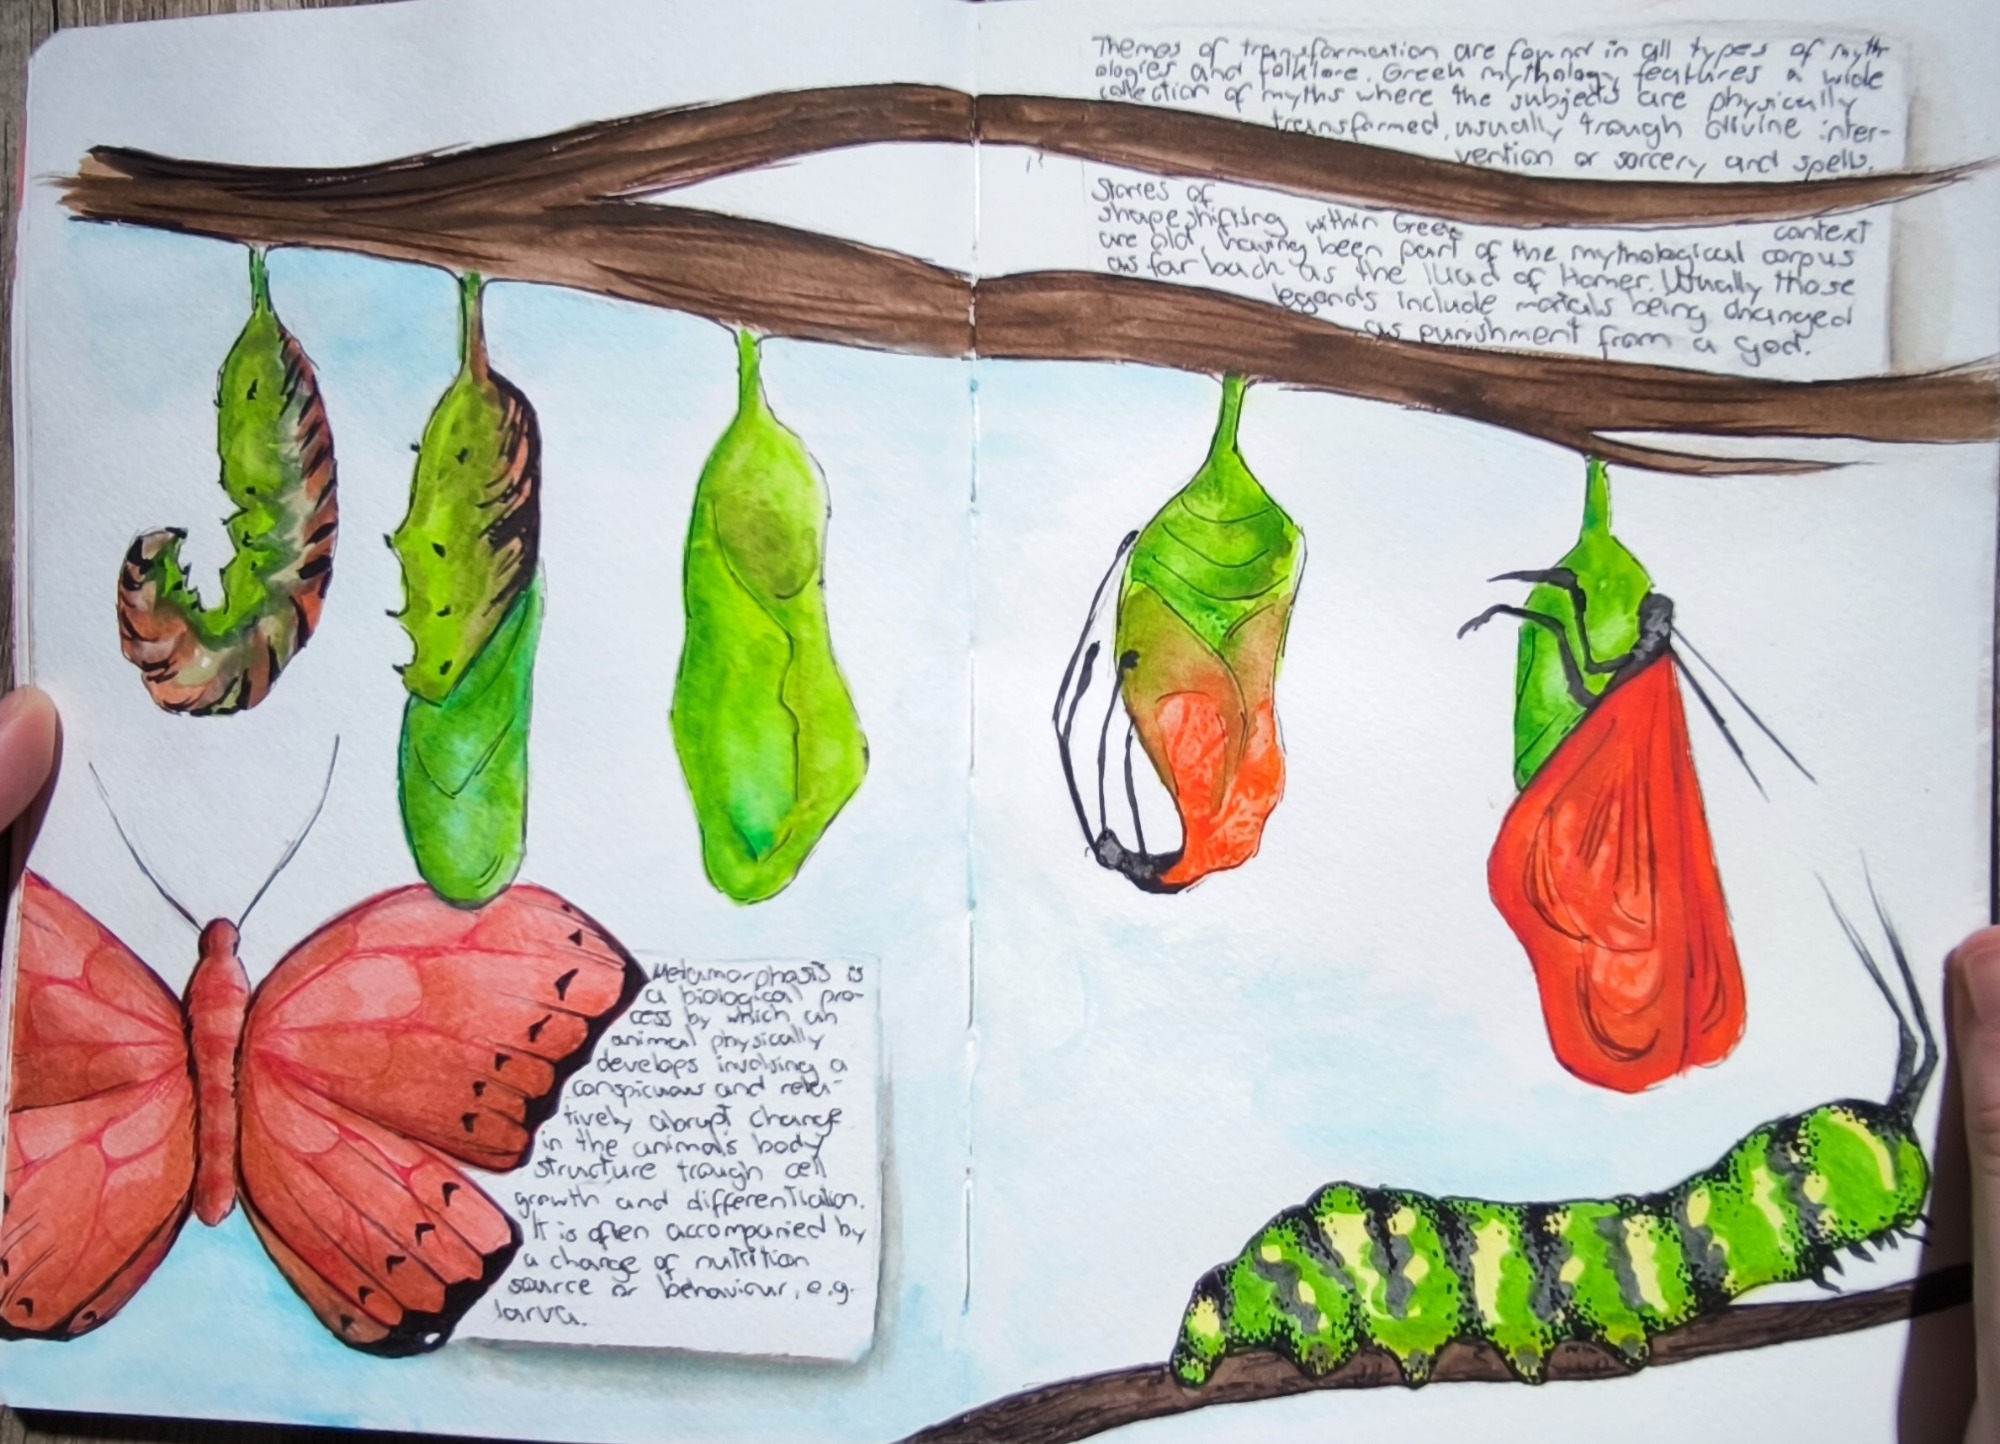 Themes of transformation are found in all types of myth-
ologies and folklore. Greek mythology features a wide
collection of myths where the subjects are physically
transformed, usually trough divine inter-
vention or sorcery and spells.
Stories of
shapeshifting within Greek context
are old, having been part of the mythological corpus
as far back as the Iliad of Homer. Usually those
legends include mortals being changed
as punishment from a god.
Metamorphosis is
a biological pro-
cess by which an
animal physically
develops involving a
conspicuous and rela-
tively abrupt change
in the animals body
structure trough cell
growth and differentiation.
It is often accompanied by
a change of nutrition
source or behaviour, e.g.
larva.